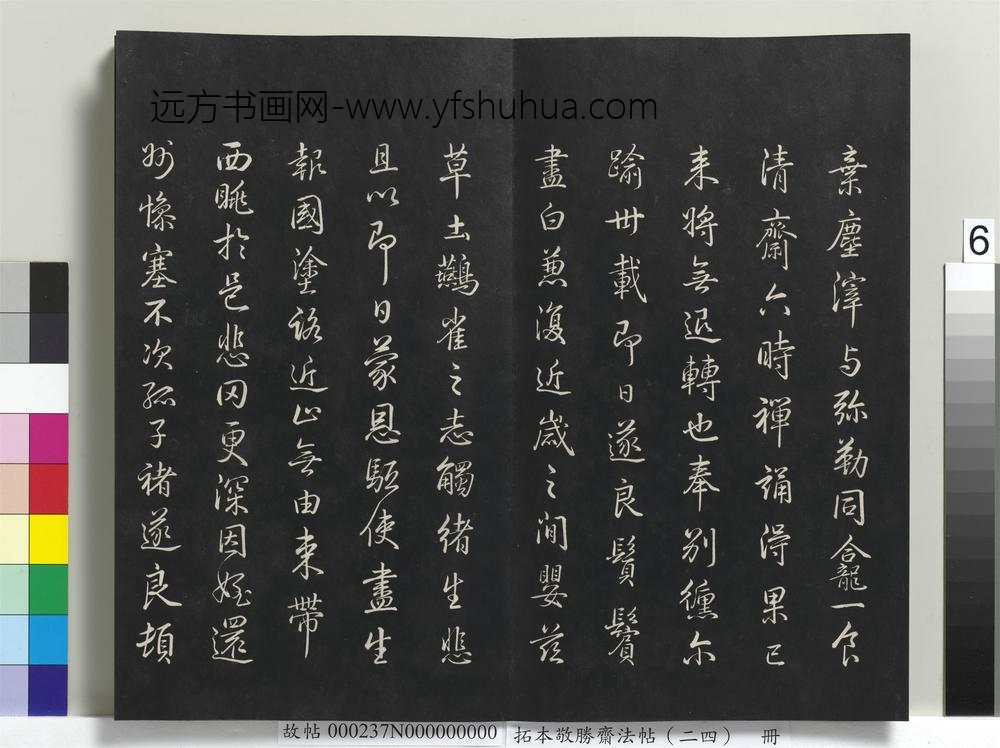 远方书画网-www.yfshuhua.com
棄塵滓与弥勒同龕一食
清齋六時禪誦得果已
来將無退轉也奉別儵尔
踰卅載即日遂良鬚鬢
盡白兼復近歲之間嬰茲
草土鷰雀之志觸緒生悲
且以即日蒙恩駈使盡生
報國塗路近止無由束帶
西眺於邑悲罔更深因姪還
州慘塞不次孤子褚遂良頓
6
故帖 000237N000000000 拓本敬勝齋法帖（二四） 冊